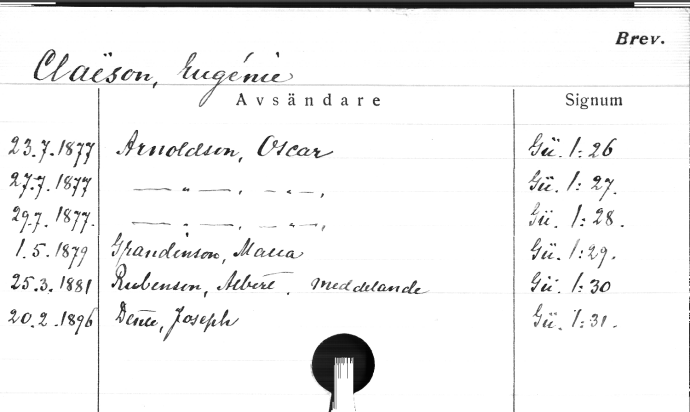 Brev.
Claëson, Eugénie
Avsändare Signum
23.7.1877 Arnoldson, Oscar Gü. 1:26
27.7.1877 — " —, — " —, Gü. 1:27.
29.7.1877. — " —, — " —, Gü. 1:28.
1.5.1879 Grandinson, Gü. 1:29.
25.3.1881 Rubenson, Albert. meddelande Gü. 1:30
20.2.1896 Dente, Joseph Gü. 1:31.